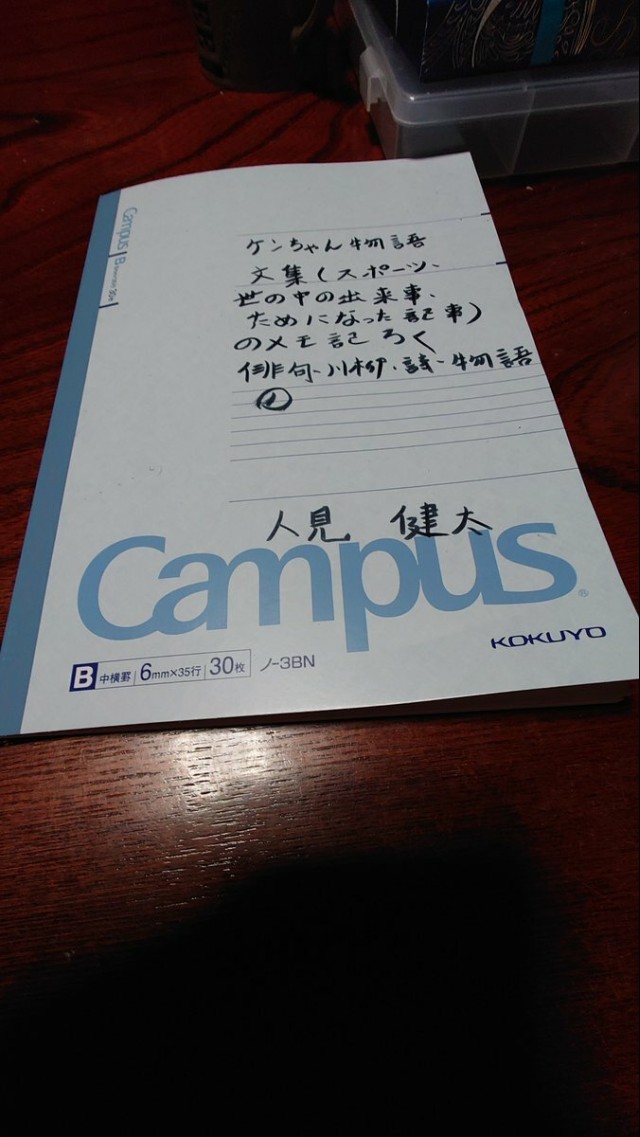 Campus B
ケンちゃん物語
文集(スポーツ、
世の中の出来事、
ためになった記事)
のメモ記ろく
俳句、川柳、詩、物語
①
人見 健太
Campus
KOKUYO
B 中横罫 6mm×35行 30枚 ノ-3BN